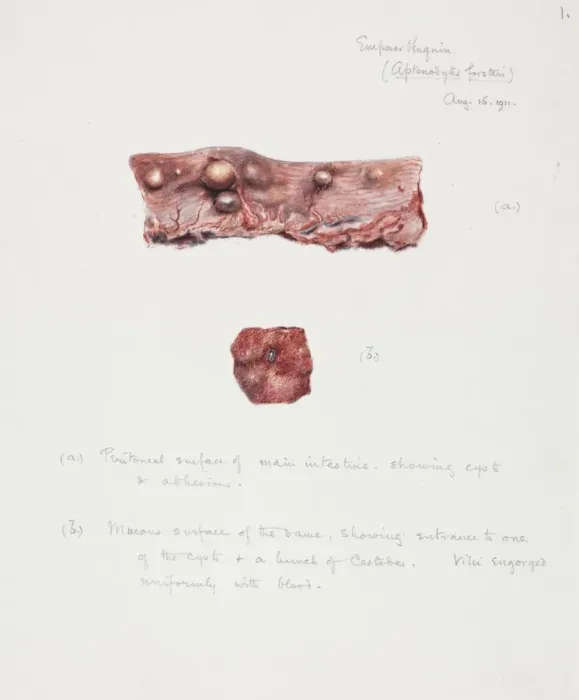 1.
Emperor Penguin
(Aptenodytes forsteri)
Aug. 16. 1911.
(a.)
(b.)
(a.) Peritoneal surface of main intestine. showing cysts
& adhesions.
(b.) Mucous surface of the same, showing entrance to one
of the cysts & a bunch of Cestodes. Villi engorged
uniformly with blood.